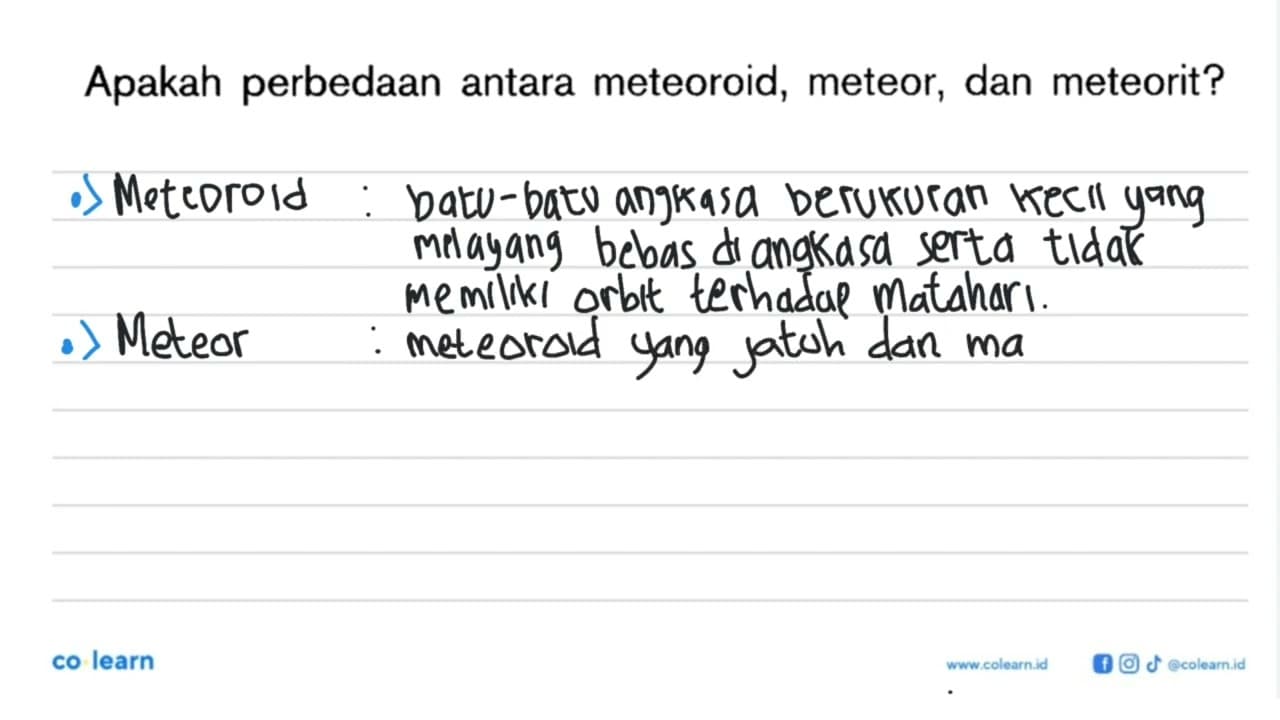 Apakah perbedaan antara meteoroid, meteor, dan meteorit?
•> Meteoroid : batu-batu angkasa berukuran kecil yang
melayang bebas di angkasa serta tidak
memiliki orbit terhadap Matahari.
•> Meteor : meteoroid yang jatuh dan ma
co learn
www.colearn.id @colearn.id